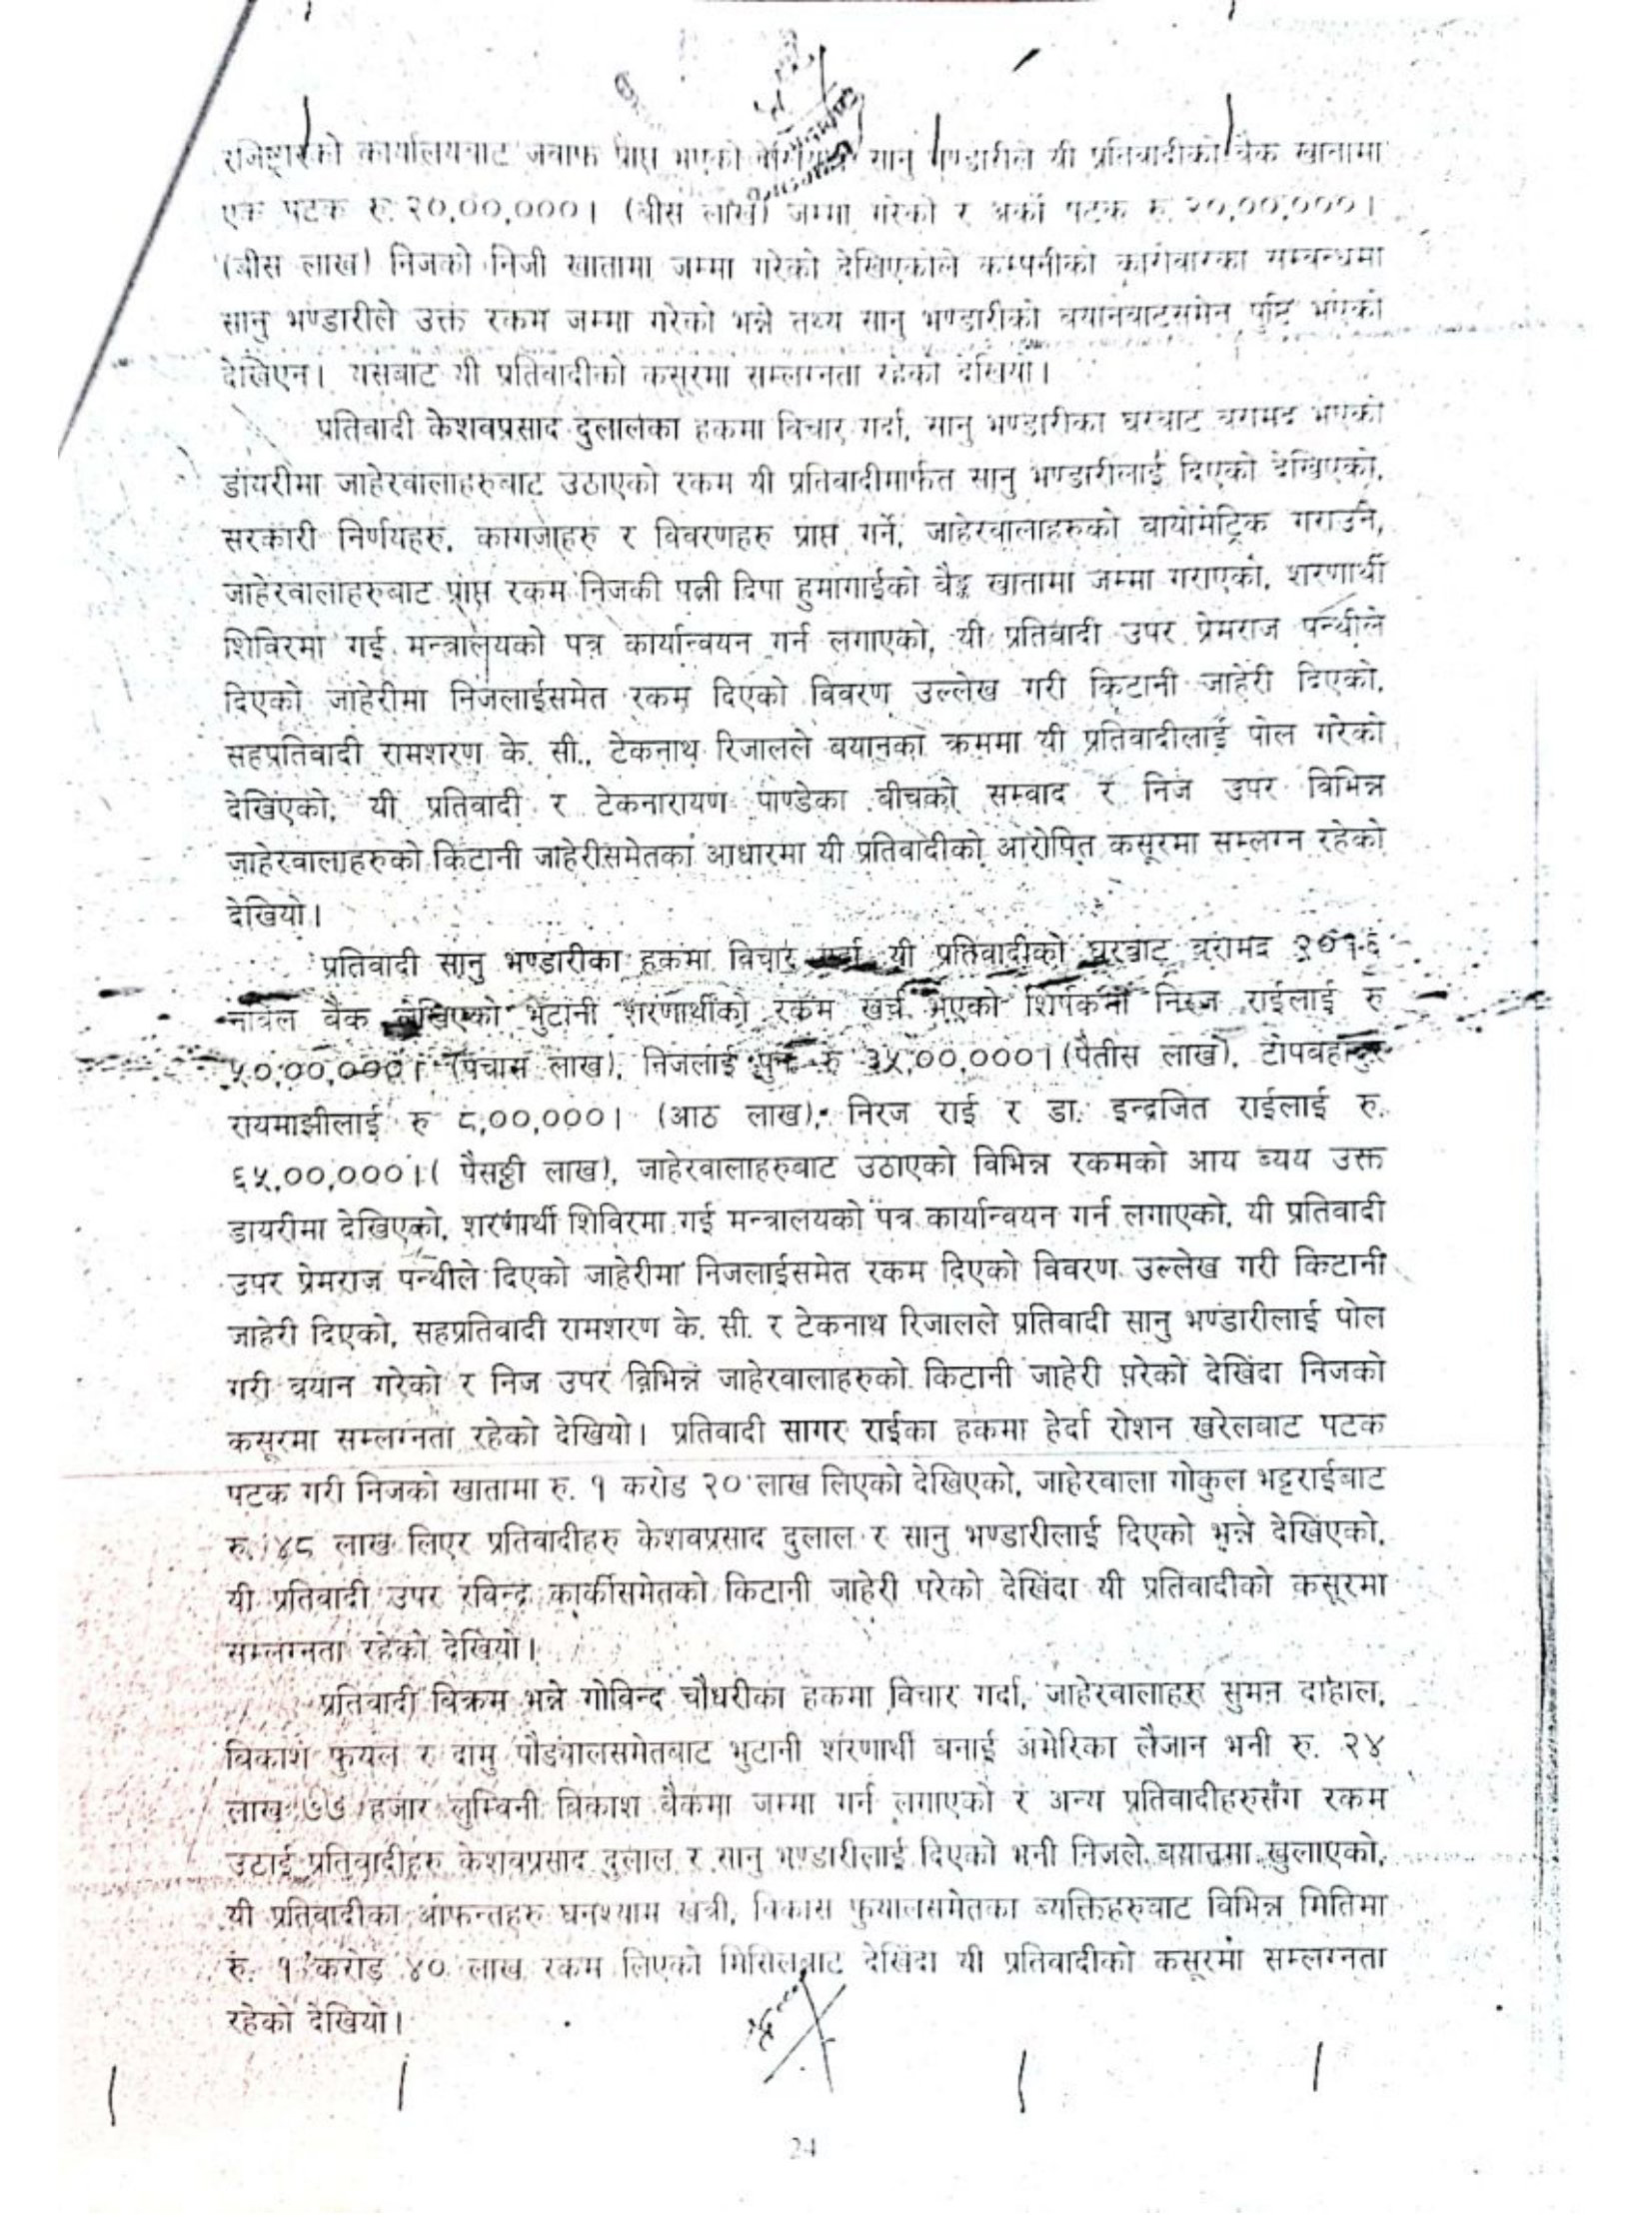 रजिष्ट्रारको कार्यालयबाट जवाफ प्राप्त भएको सानु भण्डारीले यी प्रतिवादीको बैंक खातामा
एक पटक रु. २०,००,०००। (बीस लाख) जम्मा गरेको र अर्को पटक रु. २०,००,०००।
(बीस लाख) निजको निजी खातामा जम्मा गरेको देखिएकोले कम्पनीको कारोबारका सम्बन्धमा
सानु भण्डारीले उक्त रकम जम्मा गरेको भन्ने तथ्य सानु भण्डारीको बयानबाटसमेत पुष्टि भएको
देखिएन। यसबाट यी प्रतिवादीको कसूरमा सम्लग्नता रहेको देखियो।
प्रतिवादी केशवप्रसाद दुलालका हकमा विचार गर्दा, सानु भण्डारीका घरबाट बरामद भएको
डायरीमा जाहेरवालाहरुबाट उठाएको रकम यी प्रतिवादीमार्फत सानु भण्डारीलाई दिएको देखिएको,
सरकारी निर्णयहरु, कागजाहरु र विवरणहरु प्राप्त गर्ने, जाहेरवालाहरुको बायोमेट्रिक गराउने,
जाहेरवालाहरुबाट प्राप्त रकम निजकी पत्नी दिपा हुमागाईको बैङ्क खातामा जम्मा गराएको, शरणार्थी
शिविरमा गई मन्त्रालयको पत्र कार्यान्वयन गर्न लगाएको, यी प्रतिवादी उपर प्रेमराज पन्थीले
दिएको जाहेरीमा निजलाईसमेत रकम दिएको विवरण उल्लेख गरी किटानी जाहेरी दिएको,
सहप्रतिवादी रामशरण के. सी., टेकनाथ रिजालले बयानका क्रममा यी प्रतिवादीलाई पोल गरेको
देखिएको, यी प्रतिवादी र टेकनारायण पाण्डेका बीचको सम्वाद र निज उपर विभिन्न
जाहेरवालाहरुको किटानी जाहेरीसमेतका आधारमा यी प्रतिवादीको आरोपित कसूरमा सम्लग्न रहेको
देखियो।
प्रतिवादी सानु भण्डारीका हकमा विचार गर्दा यी प्रतिवादीको घरबाट बरामद २०१६
नबिल बैंक लेखिएको भुटानी शरणार्थीको रकम खर्च भएको शिर्षकमा निरज राईलाई रु
५०,००,०००। (पचास लाख), निजलाई पुनः रु ३५,००,०००। (पैतीस लाख), टोपबहादुर
रायमाझीलाई रु ८,००,०००। (आठ लाख), निरज राई र डा. इन्द्रजित राईलाई रु.
६५,००,०००।( पैसठ्ठी लाख), जाहेरवालाहरुबाट उठाएको विभिन्न रकमको आय ब्यय उक्त
डायरीमा देखिएको, शरणार्थी शिविरमा गई मन्त्रालयको पत्र कार्यान्वयन गर्न लगाएको, यी प्रतिवादी
उपर प्रेमराज पन्थीले दिएको जाहेरीमा निजलाईसमेत रकम दिएको विवरण उल्लेख गरी किटानी
जाहेरी दिएको, सहप्रतिवादी रामशरण के. सी. र टेकनाथ रिजालले प्रतिवादी सानु भण्डारीलाई पोल
गरी बयान गरेको र निज उपर विभिन्न जाहेरवालाहरुको किटानी जाहेरी परेको देखिंदा निजको
कसूरमा सम्लग्नता रहेको देखियो। प्रतिवादी सागर राईका हकमा हेर्दा रोशन खरेलबाट पटक
पटक गरी निजको खातामा रु. १ करोड २० लाख लिएको देखिएको, जाहेरवाला गोकुल भट्टराईबाट
रु. ४८ लाख लिएर प्रतिवादीहरु केशवप्रसाद दुलाल र सानु भण्डारीलाई दिएको भन्ने देखिएको,
यी प्रतिवादी उपर रविन्द्र कार्कीसमेतको किटानी जाहेरी परेको देखिंदा यी प्रतिवादीको कसूरमा
सम्लग्नता रहेको देखियो।
प्रतिवादी बिक्रम भन्ने गोविन्द चौधरीका हकमा विचार गर्दा, जाहेरवालाहरु सुमन दाहाल,
बिकाश फुयल र दामु पौड्यालसमेतबाट भुटानी शरणार्थी बनाई अमेरिका लैजान भनी रु. २४
लाख ७७ हजार लुम्बिनी बिकाश बैंकमा जम्मा गर्न लगाएको र अन्य प्रतिवादीहरुसँग रकम
उटाई प्रतिवादीहरु केशवप्रसाद दुलाल र सानु भण्डारीलाई दिएको भनी निजले बयानमा खुलाएको,
यी प्रतिवादीका आफन्तहरु घनश्याम खत्री, विकास फुयालसमेतका ब्यक्तिहरुबाट विभिन्न मितिमा
रु. १ करोड ४० लाख रकम लिएको मिसिलबाट देखिंदा यी प्रतिवादीको कसूरमा सम्लग्नता
रहेको देखियो।
24